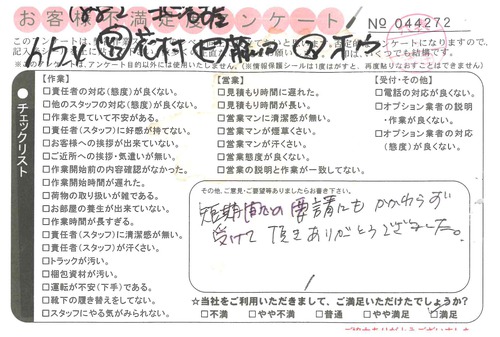 お客様不満足度アンケート
No 044272
チェックリスト
【作業】
□責任者の対応(態度)が良くない。
□他のスタッフの対応(態度)が良くない。
□作業を見ていて不安がある。
□責任者(スタッフ)に好感が持てない。
□お客様への挨拶が出来ていない。
□ご近所への挨拶・気遣いが無い。
□作業開始前の内容確認がなかった。
□作業開始時間が遅れた。
□荷物の取り扱いが雑である。
□お部屋の養生が出来ていない。
□作業時間が長すぎる。
□責任者(スタッフ)に清潔感が無い。
□責任者(スタッフ)が汗くさい。
□トラックが汚い。
□梱包資材が汚い。
□運転が不安(下手)である。
□靴下の履き替えをしてない。
□スタッフにやる気がみられない。
【営業】
□見積もり時間に遅れた。
□見積もり時間が長い。
□営業マンに清潔感が無い。
□営業マンが煙草くさい。
□営業マンが汗くさい。
□営業態度が良くない。
□営業の説明と作業が一致してない。
【受付・その他】
□電話の対応が良くない。
□オプション業者の説明・作業が良くない。
□オプション業者の対応(態度)が良くない。
その他、ご意見・ご要望等ありましたらお書き下さい。
要請にもかかわらず
受けて頂きありがとうございました。
☆当社をご利用いただきまして、ご満足いただけたでしょうか?
□不満 □やや不満 □普通 □やや満足 □満足